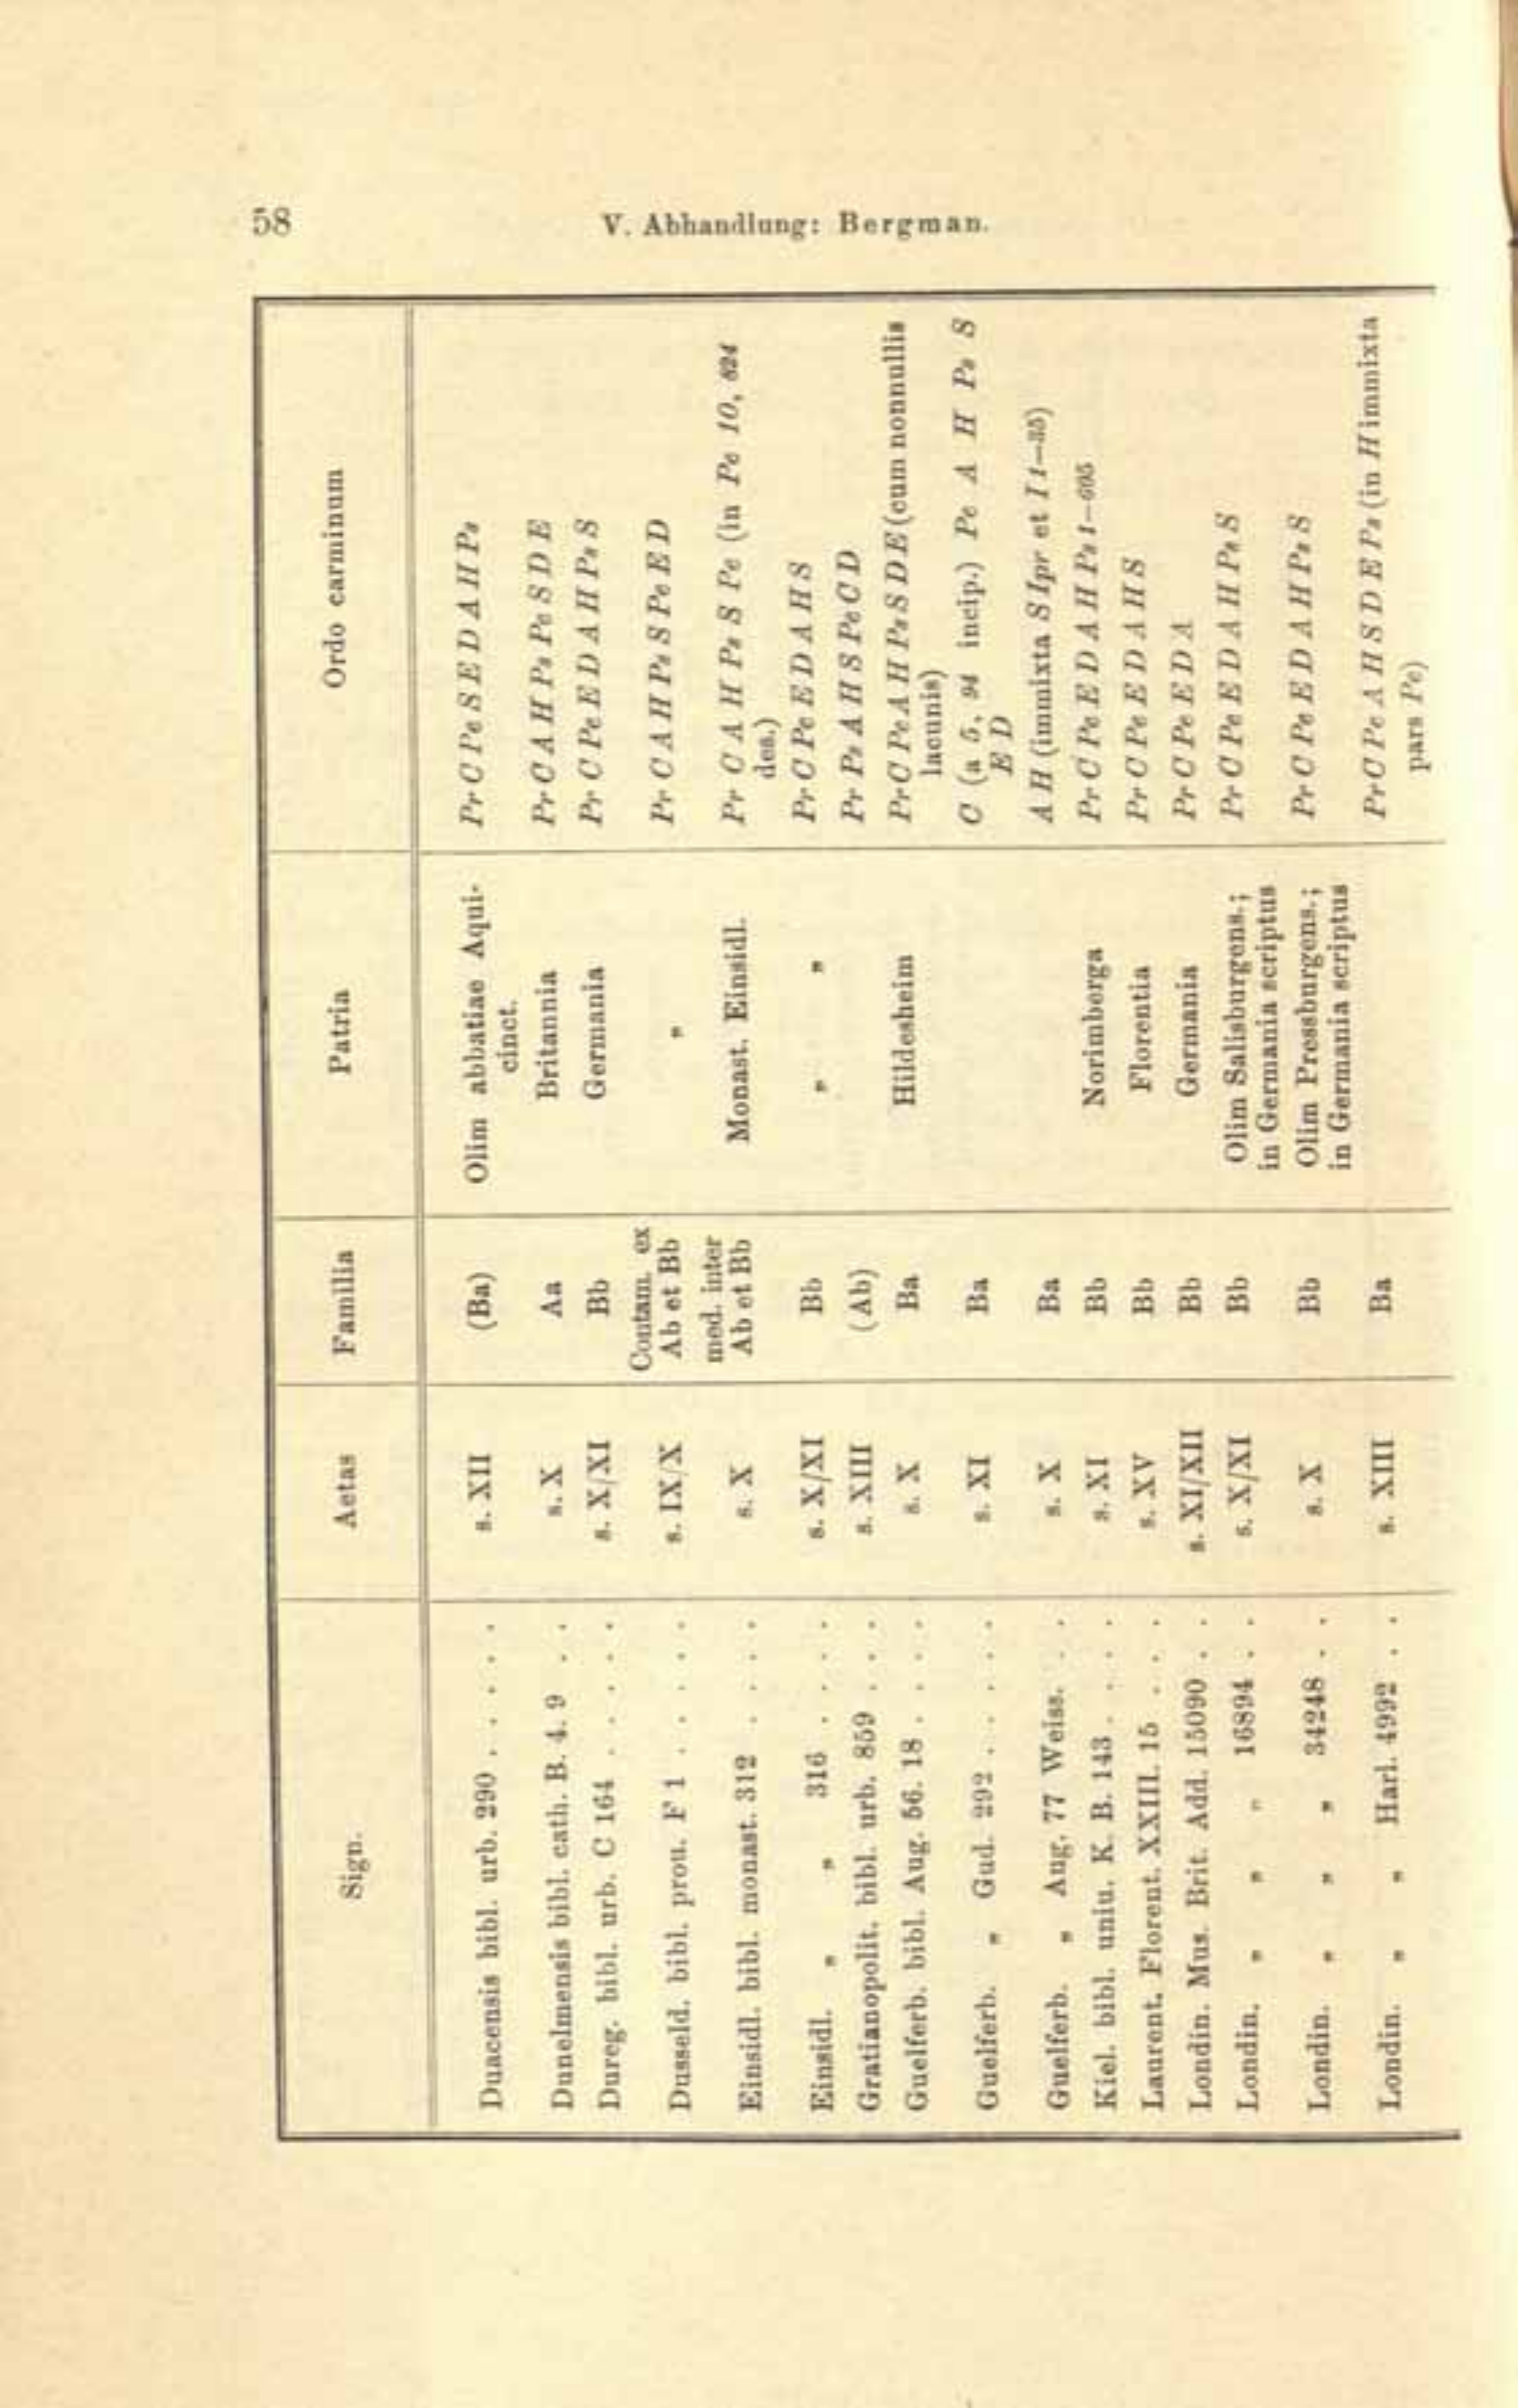 58
V. Abhandlung: Bergman.
Sign. Aetas Familia Patria Ordo carminum
Duacensis bibl. urb. 290 . . . . . s. XII (Ba) Olim abbatiae Aqui- Pr C Pe S E D A H Ps
cinct.
Dunelmensis bibl. cath. B. 4. 9 . . s. X Aa Britannia Pr C A H Ps Pe S D E
Dureg. bibl. urb. C 164 . . . . . s. X/XI Bb Germania Pr C Pe E D A H Ps S
Contam. ex
Dusseld. bibl. prou. F 1 . . . . . s. IX/X Ab et Bb " Pr C A H Ps S Pe E D
med. inter
Einsidl. bibl. monast. 312 . . . . s. X Ab et Bb Monast. Einsidl. Pr C A H Ps S Pe (in Pe 10, 824
des.)
Einsidl. " " 316 . . . . s. X/XI Bb " " Pr C Pe E D A H S
Gratianopolit. bibl. urb. 859 . . . s. XIII (Ab) Pr Ps A H S Pe C D
Guelferb. bibl. Aug. 56. 18 . . . . s. X Ba Hildesheim Pr C Pe A H Ps S D E (cum nonnullis
lacunis)
Guelferb. " Gud. 292 . . . . . s. XI Ba C (a 5, 94 incip.) Pe A H Ps S
E D
Guelferb. " Aug. 77 Weiss. . . s. X Ba A H (immixta S Ipr et I 1—35)
Kiel. bibl. uniu. K. B. 143 . . . . s. XI Bb Norimberga Pr C Pe E D A H Ps 1—605
Laurent. Florent. XXIII. 15 . . . s. XV Bb Florentia Pr C Pe E D A H S
Londin. Mus. Brit. Add. 15090 . . s. XI/XII Bb Germania Pr C Pe E D A
Londin. " " " 16894 . . s. X/XI Bb Olim Salisburgens.; Pr C Pe E D A H Ps S
in Germania scriptus
Londin. " " " 34248 . . s. X Bb Olim Pressburgens.; Pr C Pe E D A H Ps S
in Germania scriptus
Londin. " " Harl. 4992 . . s. XIII Ba Pr C Pe A H S D E Ps (in H immixta
pars Pe)